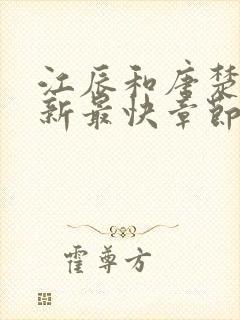 江辰和唐楚
新最快章节
霍尊方